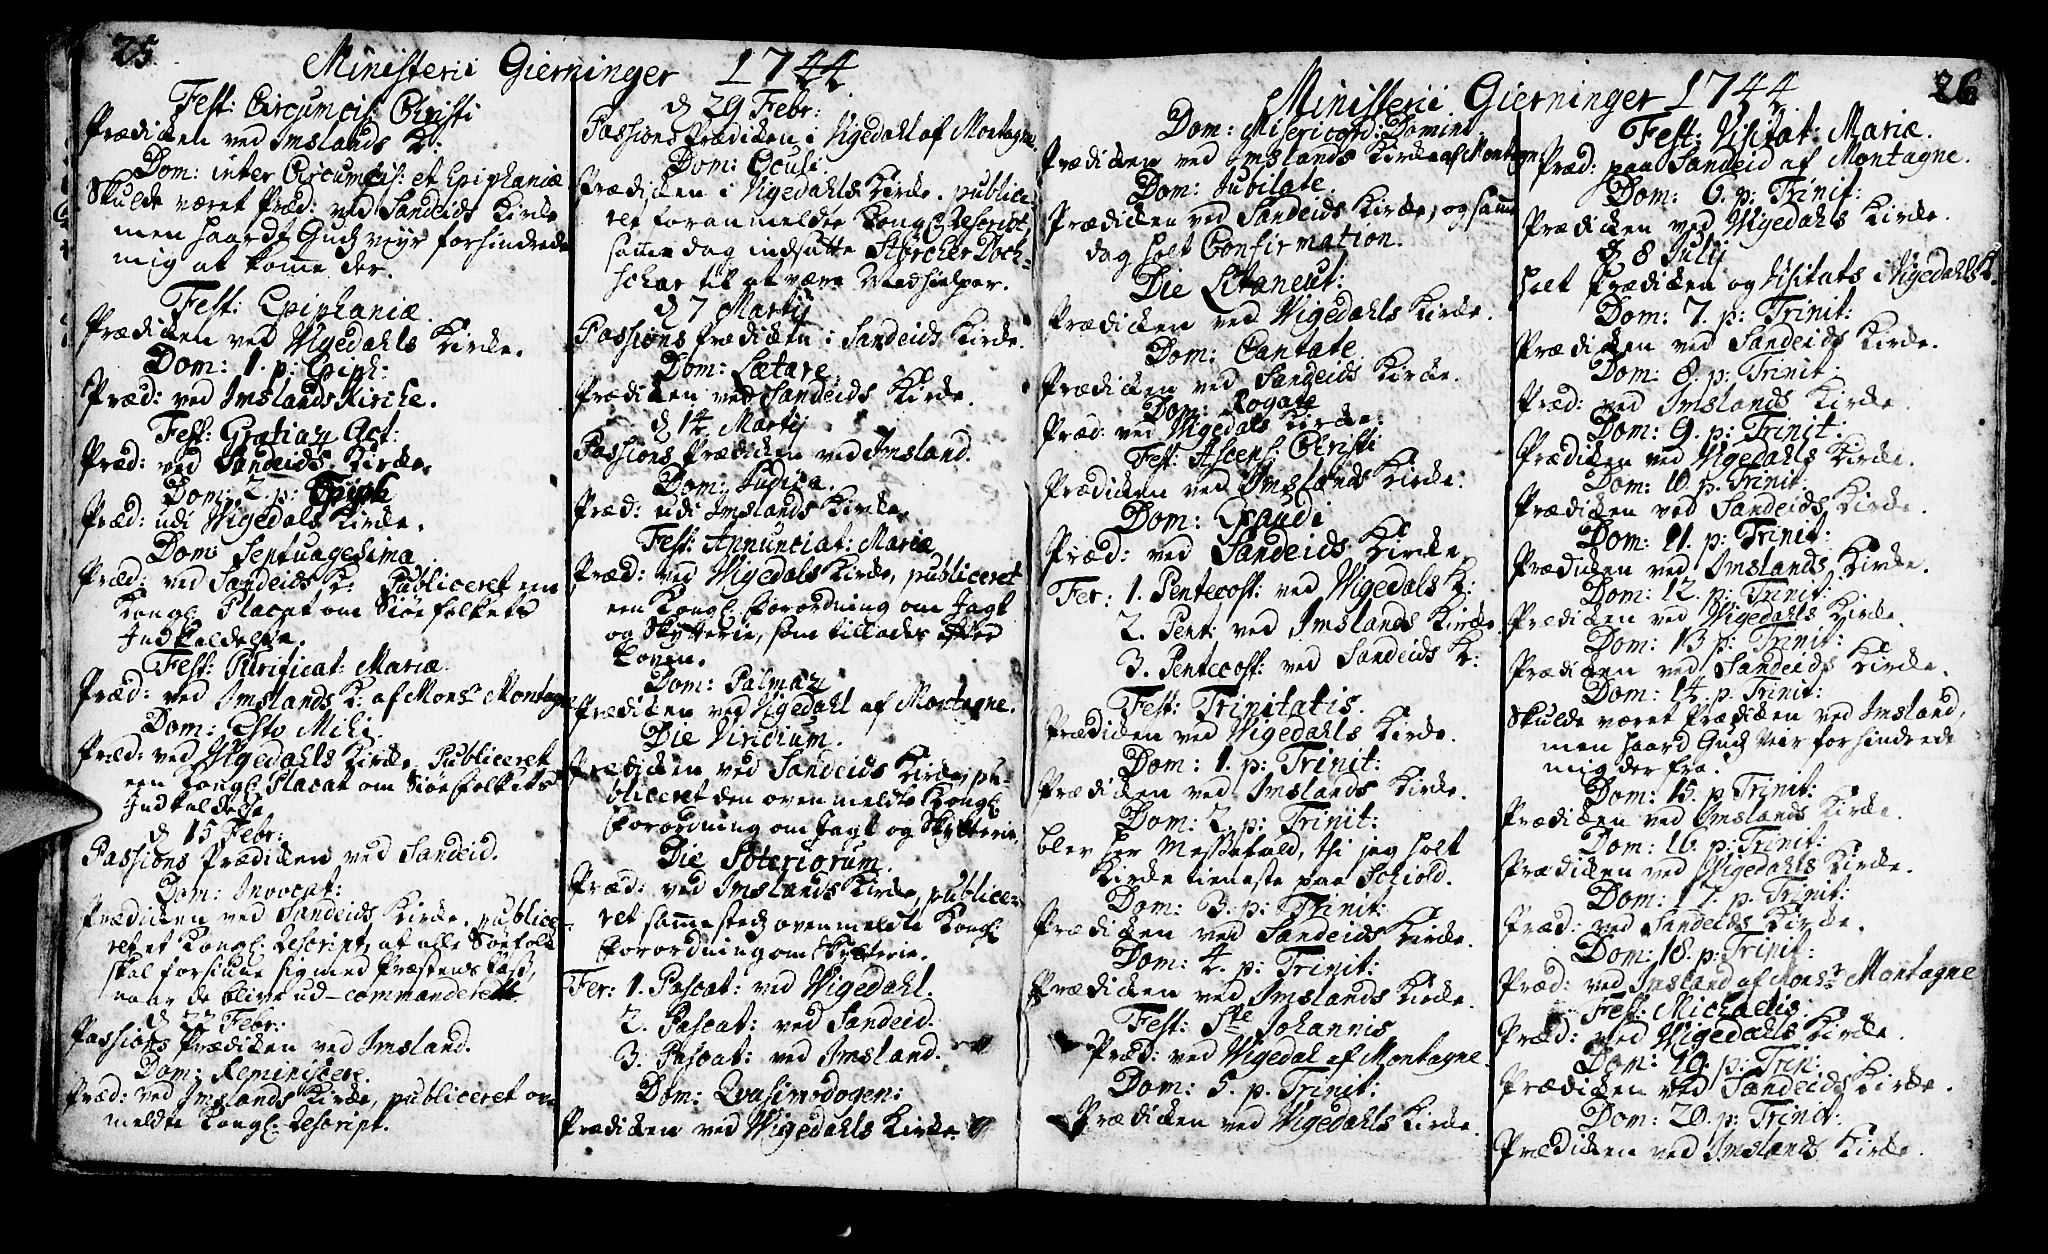 25
Ministerii Gierninger 1744.
Fest: Circumcis: Christi
Prædicken ved Imslands K:
Dom: inter Circumcis: et Epiphaniæ
Skulde været Præd: ved Sandeids Kirke
men haardt Guds veyr forhindrede
mig at komme der.
Fest: Epiphaniæ.
Prædicken ved Vigedahls Kirke.
Dom: 1. p: Epiph:
Præd: ved Imslands Kirche.
Fest: Gratiar Act:
Præd: ved Sandeids Kirke.
Dom: 2. p: Epiph
Præd: udi Vigedals Kirke.
Dom: Septuagesima
Præd: ved Sandeids K: Publiceret een
Kongl: Placat om Siøefolkets
Indkaldelse.
Fest: Purificat: Mariæ
Præd: ved Imslands K: af Monsr Montagne
Dom: Esto Mihi.
Præd: ved Vigedahls Kirke. Publiceret
een Kongl: Placat om Siøefolkets
Indkaldelse
d 15 Febr:
Passions Prædicken ved Sandeid.
Dom: Invocat:
Prædicken ved Sandeids Kirke. publice-
ret et Kongl: Rescript, at alle Søefolk
skal forsiune sig med Præstens Pass,
naar de blive ud-commanderett
d 22 Febr:
Passions Prædicken ved Imsland.
Dom: Reminiscere.
Præd: ved Imslands Kirke, publiceret ov
meldte Kongl: Rescript.
d 29 Febr:
Passions Prædicken i Vigedahl af Montagne.
Dom: Oculi.
Prædicken i Vigedahls Kirke. publice-
ret foranmeldte Kongl: Rescript,
samme dag indsatte Størcher
til at være Medhielper.
d 7 Martij
Passions Prædicken i Sandeids Kirke.
Dom: Lætare
Prædicken ved Sandeids Kirke.
d 14 Martij
Passions Prædicken ved Imsland.
Dom: Judica.
Præd: udi Imslands Kirke.
Fest: Annunciat: Mariæ
Præd: ved Vigedals Kirke, publiceret
een Kongl: Forordning om Jagt
og Skytterie, som tillades efter
Loven.
Dom: Palmar
Prædicken ved Vigedahl af Montagne.
Die Viridium.
Prædicken ved Sandeids Kirke, pu-
bliceret den ovenmeldte Kongl:
Forordning om Jagt og Skytterie.
Die Soteriorum.
Præd: ved Imslands Kirke, publice-
ret samme steds ovenmeldte Kongl:
Forordning om Skytterie.
Fer: 1. Pascat: ved Vigedahl.
2. Pascat: ved Sandeid.
3. Pascat: ved Imsland.
Dom: Qvasimodogen:
Prædicken ved Vigedahls Kirke.
26
Ministerii Gierninger 1744.
Dom: Misericord: Domini.
Prædicken ved Imslands Kirke af Montagne
Dom: Jubilate.
Prædicken ved Sandeids Kirke, og samme
dag holt Confirmation.
Die Litaneut:
Prædicken ved Vigedahls Kirke.
Dom: Cantate.
Prædicken ved Sandeids Kirke.
Dom: Rogate
Præd: ved Vigedals Kirke:
Fest: Ascens: Christi
Prædicken ved Imslands Kirke.
Dom: Exaudi
Præd: ved Sandeids Kirke.
Fer: 1. Pentecost: ved Vigedals K:
2. Pent: ved Imslands Kirke.
3. Pentecost: ved Sandeids K:
Fest: Trinitatis.
Prædicken ved Vigedahls Kirke.
Dom: 1. p: Trinit:
Prædicken ved Imslands Kirke.
Dom: 2. p: Trinit:
blev her Messefald, thi jeg holt
Kirke tieneste paa Schiold.
Dom: 3. p: Trinit:
Prædicken ved Sandeids Kirke.
Dom: 4. p: Trinit:
Prædicken ved Imslands Kirke.
Fest: Ste Johannis
Præd: ved Vigedal af Montagne.
Dom: 5. p. Trinit:
Prædicken ved Vigedahls Kirke.
Fest: Visitat: Mariæ.
Præd: paa Sandeid af Montagne.
Dom: 6. p: Trinit:
Prædicken ved Vigedahls Kirke.
d 8 Julij
holt Prædicken og Visitats i Vigedahls K.
Dom: 7. p: Trinit:
Prædicken ved Sandeids Kirke.
Dom: 8. p: Trinit:
Præd: ved Imslands Kirke.
Dom: 9. p: Trinit:
Prædicken ved Vigedahls Kirke.
Dom: 10. p. Trinit.
Prædicken ved Sandeids Kirke.
Dom: 11. p: Trinit:
Prædicken ved Imslands Kirke.
Dom: 12. p: Trinit:
Prædicken ved Vigedahls Kirke.
Dom: 13 p: Trinit:
Prædicken ved Sandeids Kirke.
Dom: 14. p. Trinit:
Skulde været Prædicken ved Imsland,
men haard Guds Veir forhindrede
mig der fra.
Dom: 15. p Trinit:
Prædicken ved Imslands Kirke.
Dom: 16. p: Trinit:
Prædicken ved Vigedahls Kirke.
Dom: 17. p. Trinit:
Præd: ved Sandeids Kirke.
Dom: 18. p: Trinit:
Præd: ved Imsland af Monsr Montagne
Fest: Michaelis.
Præd: ved Vigedahls Kirke.
Dom: 19. p: Trin:
Prædicken ved Sandeids Kirke.
Dom: 20. p: Trinit:
Prædicken ved Imslands Kirke.